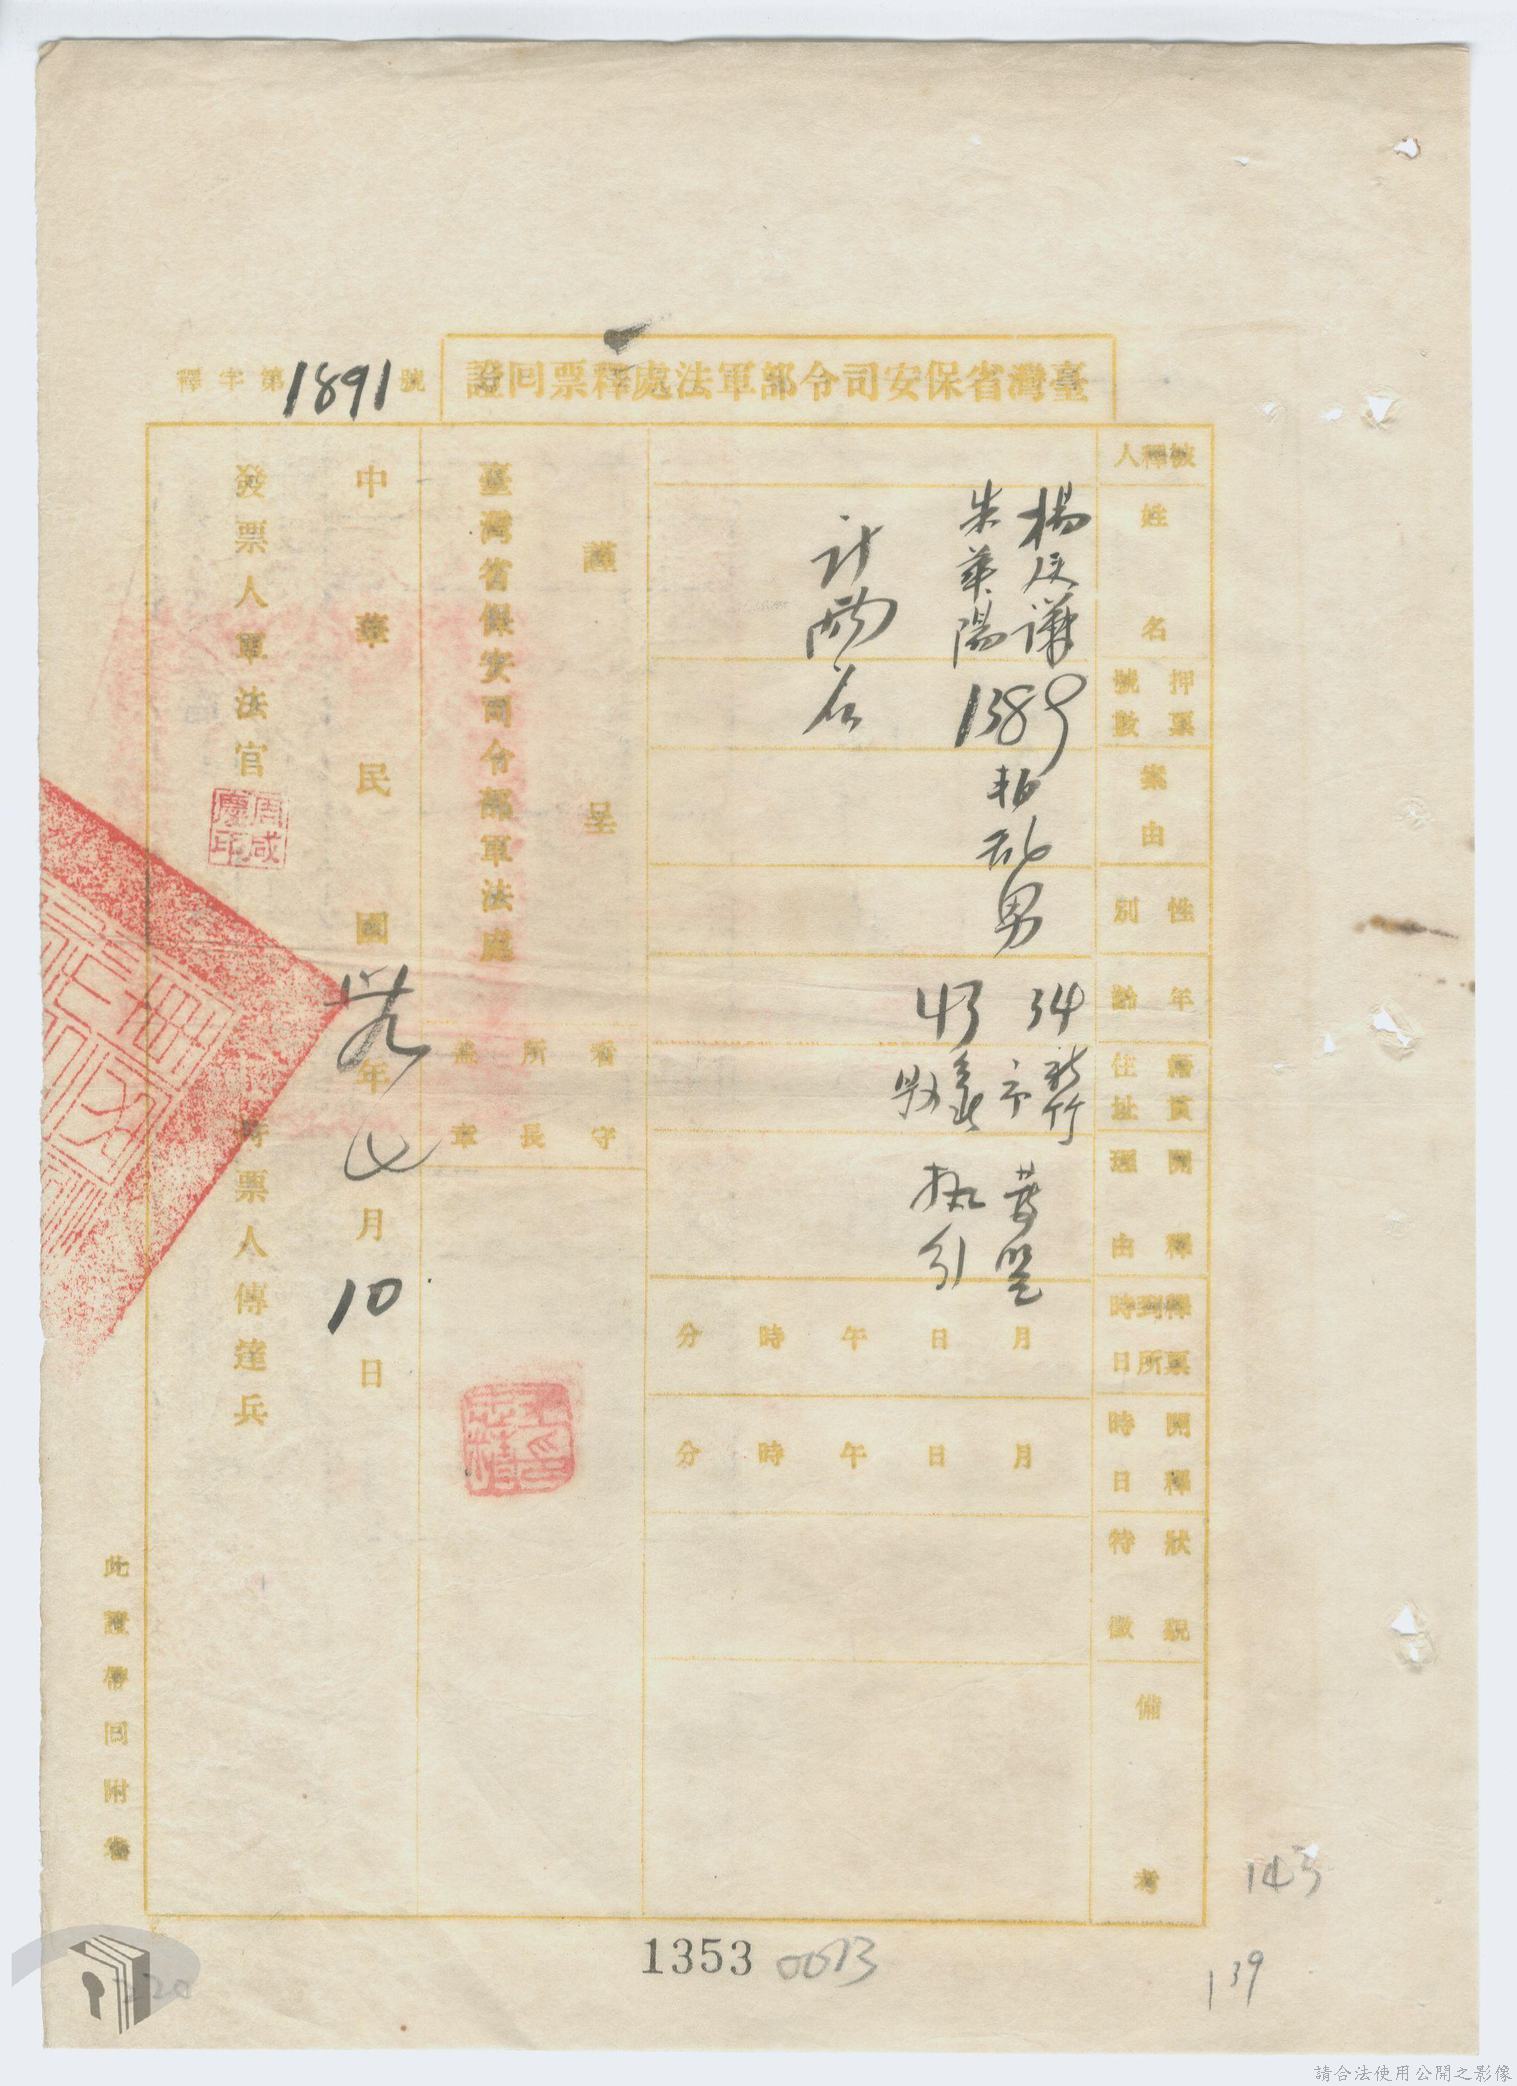 臺灣省保安司令部軍法處釋票回證
釋字第1891號
被釋人
姓名
楊 謙
朱華陽
計兩名
押票號數
1389
案由
叛亂
性別
男
年齡
34
43
籍貫住址
新竹市
嘉義縣
開釋理由
發監執行
釋票到所時日
月 日 午 時 分
開釋時日
月 日 午 時 分
狀貌特徵
備考
謹呈
臺灣省保安司令部軍法處
看守所長蓋章
中華民國 年 月10日
發票人軍法官
周咸慶印
持票人傳達兵
此證帶回附卷
1353
0013
143
139
請合法使用公開之影像